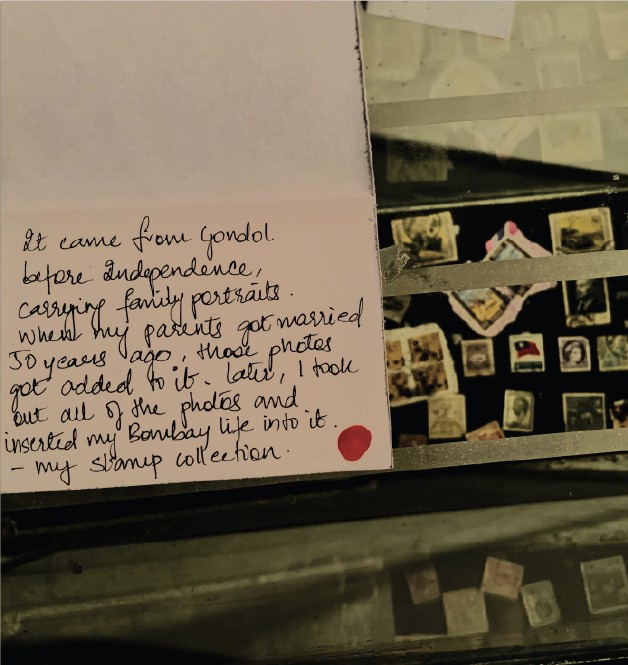 It came from Gondol.
before Independence,
carrying family portraits.
when my parents got married
50 years ago, those photos
got added to it. later, I took
out all of the photos and
inserted my Bombay life into it.
- my stamp collection.